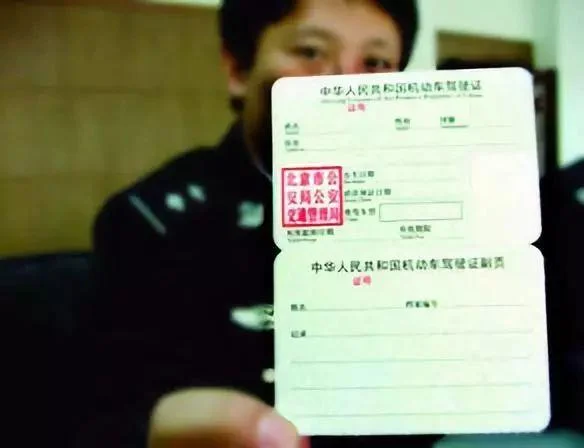 中华人民共和国机动车驾驶证
证号
姓名
性别
国籍
住址
北京市公
安局公安
交通管理局
出生日期
初次领证日期
准驾车型
有效起始日期
有效期限
中华人民共和国机动车驾驶证副页
证号
姓名
档案编号
记录